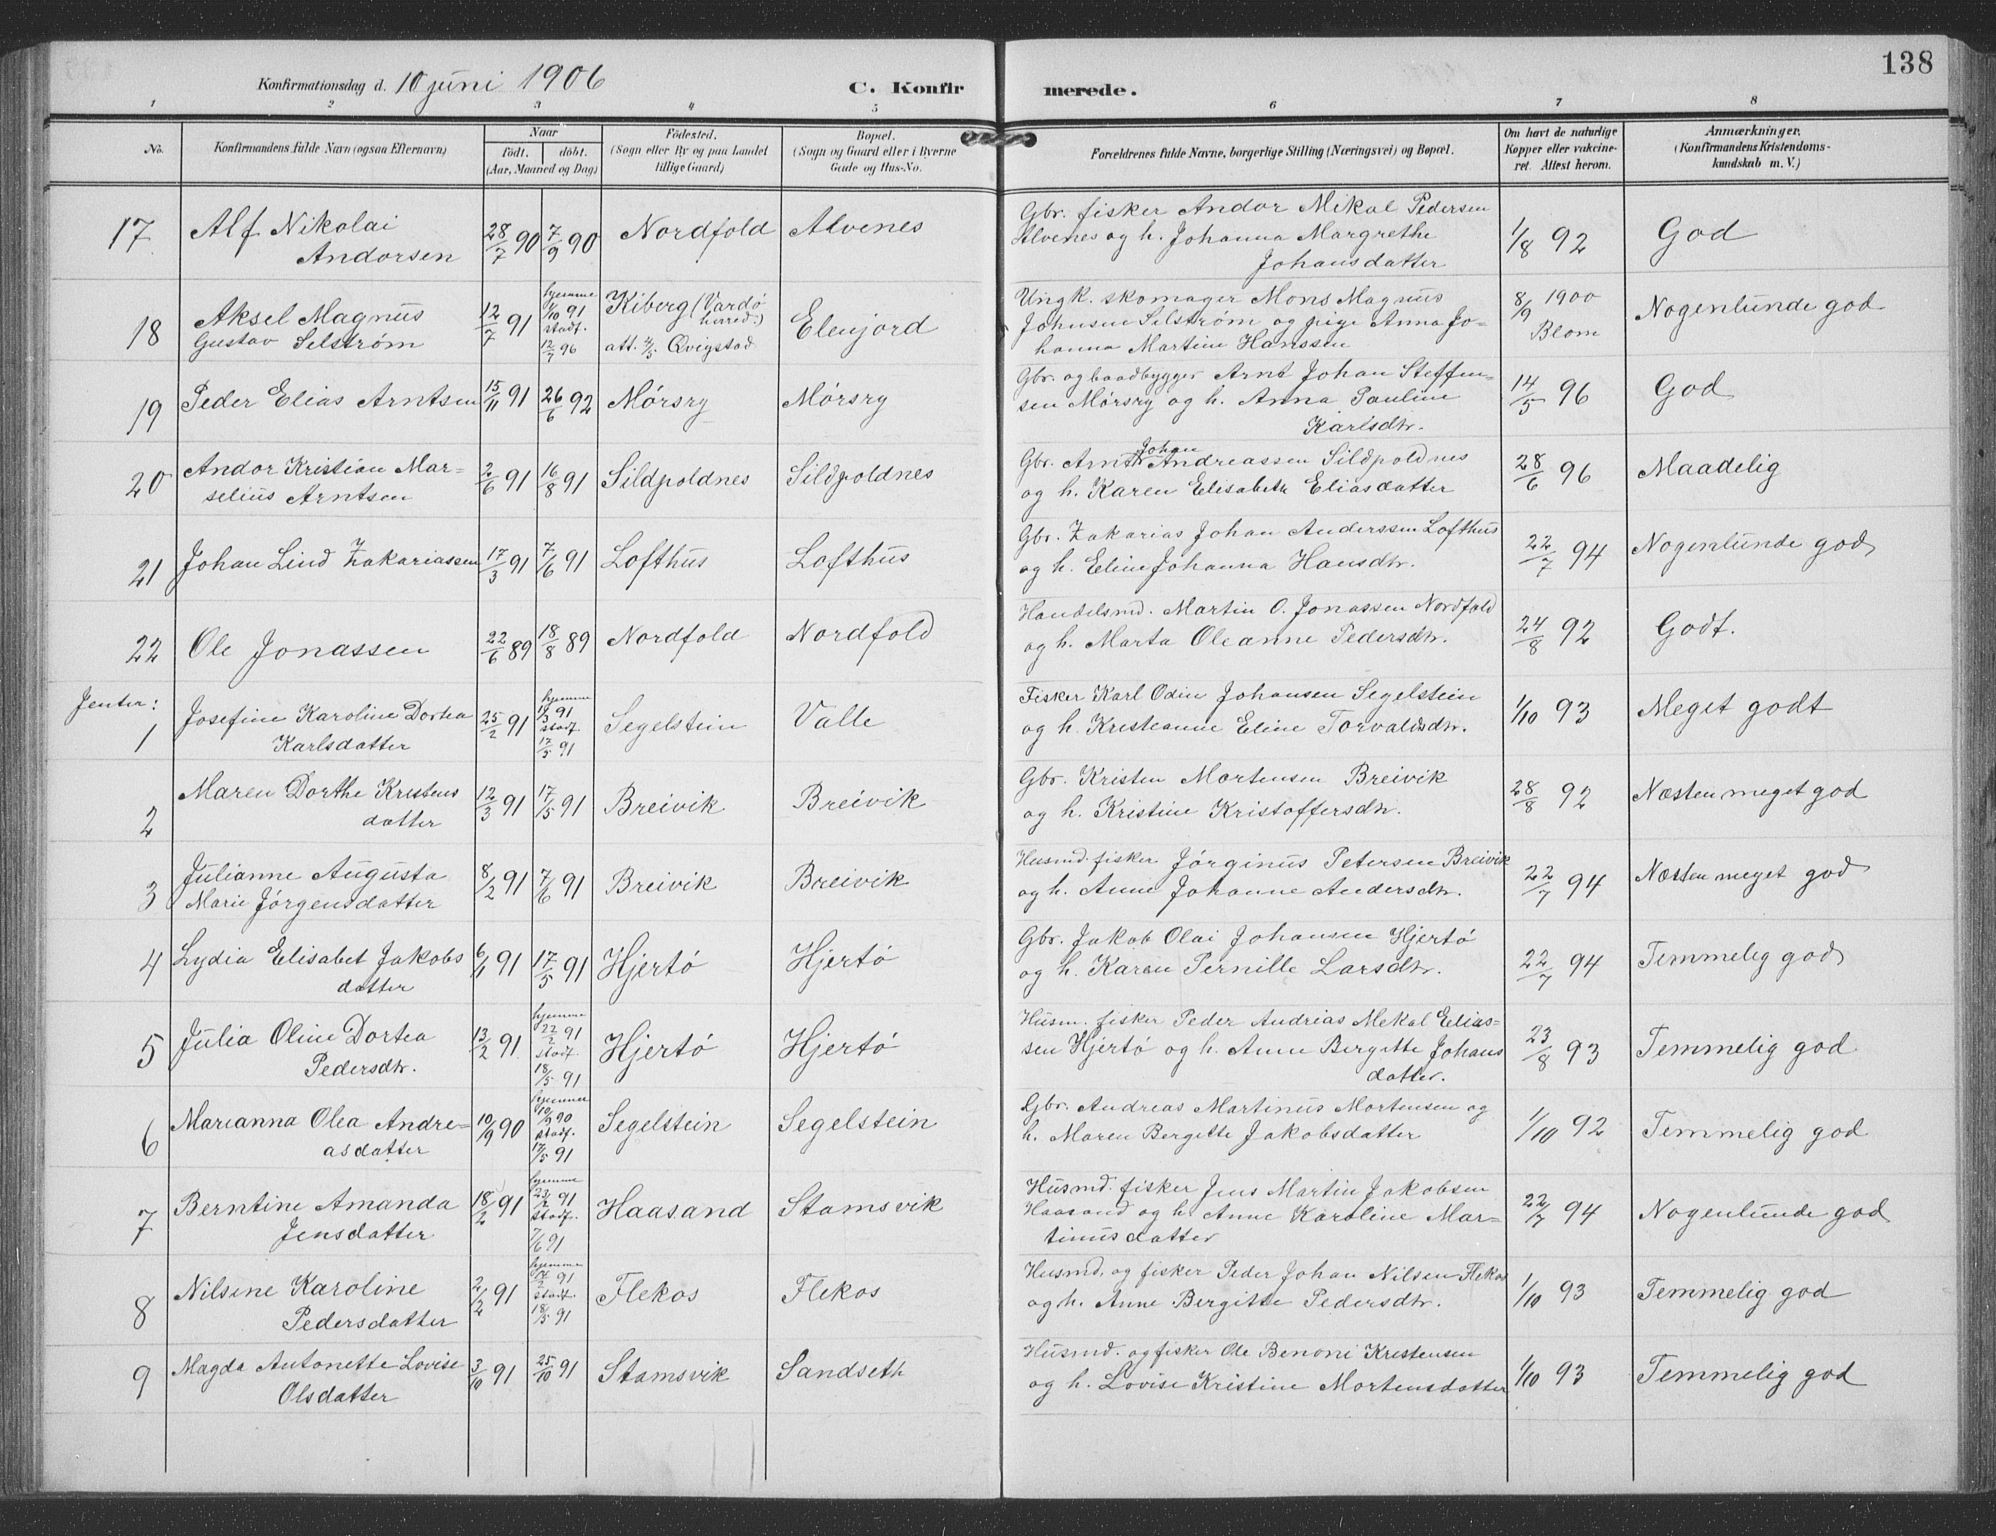 138
Konfirmationsdag d. 10 juni 1906
C. Konfir merede.
1 2 3 4 5 6 7 8
No.
Konfirmandens fulde Navn (ogsaa Efternavn)
Naar
født. døbt.
(Aar, Maaned og Dag)
Fødested.
(Sogn eller By og paa Landet
tillige Gaard)
Bopæl.
(Sogn og Gaard eller i Byerne
Gade og Hus-No.
Forældrenes fulde Navne, borgerlige Stilling (Næringsvei) og Bopæl.
Om havt de naturlige
Kopper eller vakcine-
ret. Attest herom.
Anmærkninger.
(Konfirmandens Kristendoms-
kundskab m. V.)
17 Alf Nikolai 28/7 90 7/9 90 Nordfold Alvenes
Andorsen
Gbr. fisker Andor Mikal Pedersen
Alvenes og h. Johanna Margrethe
Johansdatter
1/8 92 God
18 Aksel Magnus
Gustav Selstrøm
12/7 91
hjemme
1/10 91
stadf.
12/7 96
Kiberg (Vardø
herred.)
att. 4/5 Qvigstad
Elenjord
Ungk. skomager Mons Magnus
Johnsen Selstrøm og pige Anna Jo-
hanna Martine Hanssen
8/9 1900
Blom
Nogenlunde god
19 Peder Elias Arntsen 15/11 91 26/6 92 Mørsry Mørsry
Gbr. og baadbygger Arnt Johan Steffen-
sen Mørsry og h. Anna Pauline
Karlsdtr.
14/5 96 God
20 Andor Kristian Mar-
selius Arntsen
2/6 91 16/8 91 Sildpoldnes Sildpoldnes
Johan
Gbr. Arnt Andreassen Sildpoldnes
og h. Karen Elisabeth Eliasdatter
28/6 96 Maadelig
21 Johan Lind Zakariassen 17/3 91 7/6 91 Lofthus Lofthus
Gbr. Zakarias Johan Anderssen Lofthus
og h. Eline Johanna Hansdtr.
22/7 94 Nogenlunde god
22 Ole Jonassen 22/6 89 18/8 89 Nordfold Nordfold
Handelsmd. Martin O. Jonassen Nordfold
og h. Marta Oleanne Pedersdtr.
24/8 92 Godt.
Jenter:
1 Josefine Karoline Dortea
Karlsdatter
25/2 91
hjemme
15/3 91
stadf.
17/5 91
Segelstein Valle
Fisker Karl Odin Johansen Segelstein
og h. Kristianne Eline Torvaldsdtr.
1/10 93 Meget godt
2 Maren Dorthe Kristens
datter
12/3 91 17/5 91 Breivik Breivik
Gbr. Kristen Mortensen Breivik
og h. Kristine Kristoffersdtr.
28/8 92 Næsten meget god
3 Julianne Augusta
Marie Jørgensdatter
8/2 91 7/6 91 Breivik Breivik
Husmd. fisker Jørginus Petersen Breivik
og h. Anne Johanne Andersdtr.
22/7 94 Næsten meget god
4 Lydia Elisabet Jakobs
datter
6/1 91 17/5 91 Hjertø Hjertø
Gbr. Jakob Olai Johansen Hjertø
og h. Karen Pernille Larsdtr.
22/7 94 Temmelig god
5 Julia Oline Dortea
Pedersdtr.
13/2 91
hjemme
22/2 91
stadf.
18/5 91
Hjertø Hjertø
Husm. fisker Peder Andreas Mekal Elias-
sen Hjertø og h. Anne Bergitte Johans
datter.
23/8 93 Temmelig god
6 Marianna Olea Andre-
asdatter
10/9 90
hjemme
10/9 90
stadf.
17/5 91
Segelstein Segelstein
Gbr. Andreas Martinus Mortensen og
h. Maren Bergitte Jakobsdatter
1/10 92 Temmelig god
7 Berntine Amanda
Jensdatter
18/2 91
hjemme
22/2 91
stadf.
7/6 91
Haasand Stamsvik
Husmd. fisker Jens Martin Jakobsen
Haasand og h. Anne Karoline Mar-
tinusdatter
22/7 94 Nogenlunde god
8 Nilsine Karoline
Pedersdatter
2/2 91
hjemme
17/2 91
stadf.
18/5 91
Flekos Flekos
Husmd. og fisker Peder Johan Nilsen Flekos
og h. Anne Bergitte Pedersdtr.
1/10 93 Temmelig god
9 Magda Antonette Lovise
Olsdatter
3/10 91 25/10 91 Stamsvik Sandseth
Husmd. og fisker Ole Benoni Kristensen
og h. Lovise Kristine Mortensdatter
1/10 93 Temmelig god